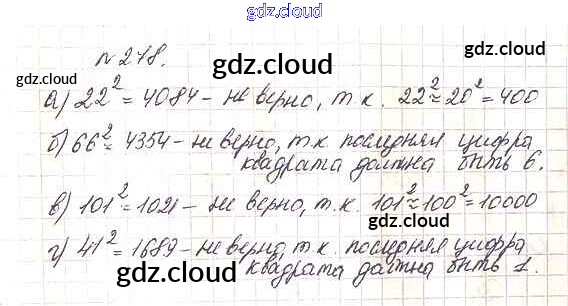 gdz.cloud
gdz.cloud
№ 248.
gdz.cloud
gdz.cloud
gdz.cloud
а) 22² = 4084 - не верно, т.к. 22² ≈ 20² = 400
б) 66² = 4354 - не верно, т.к последняя цифра
квадрата должна быть 6.
в) 101² = 1021 - не верно, т.к. 101² ≈ 100² = 10000
gdz.cloud
г) 41² = 1689 - не верно, т.к. последняя цифра
gdz.cloud
квадрата должна быть 1.
gdz.cloud